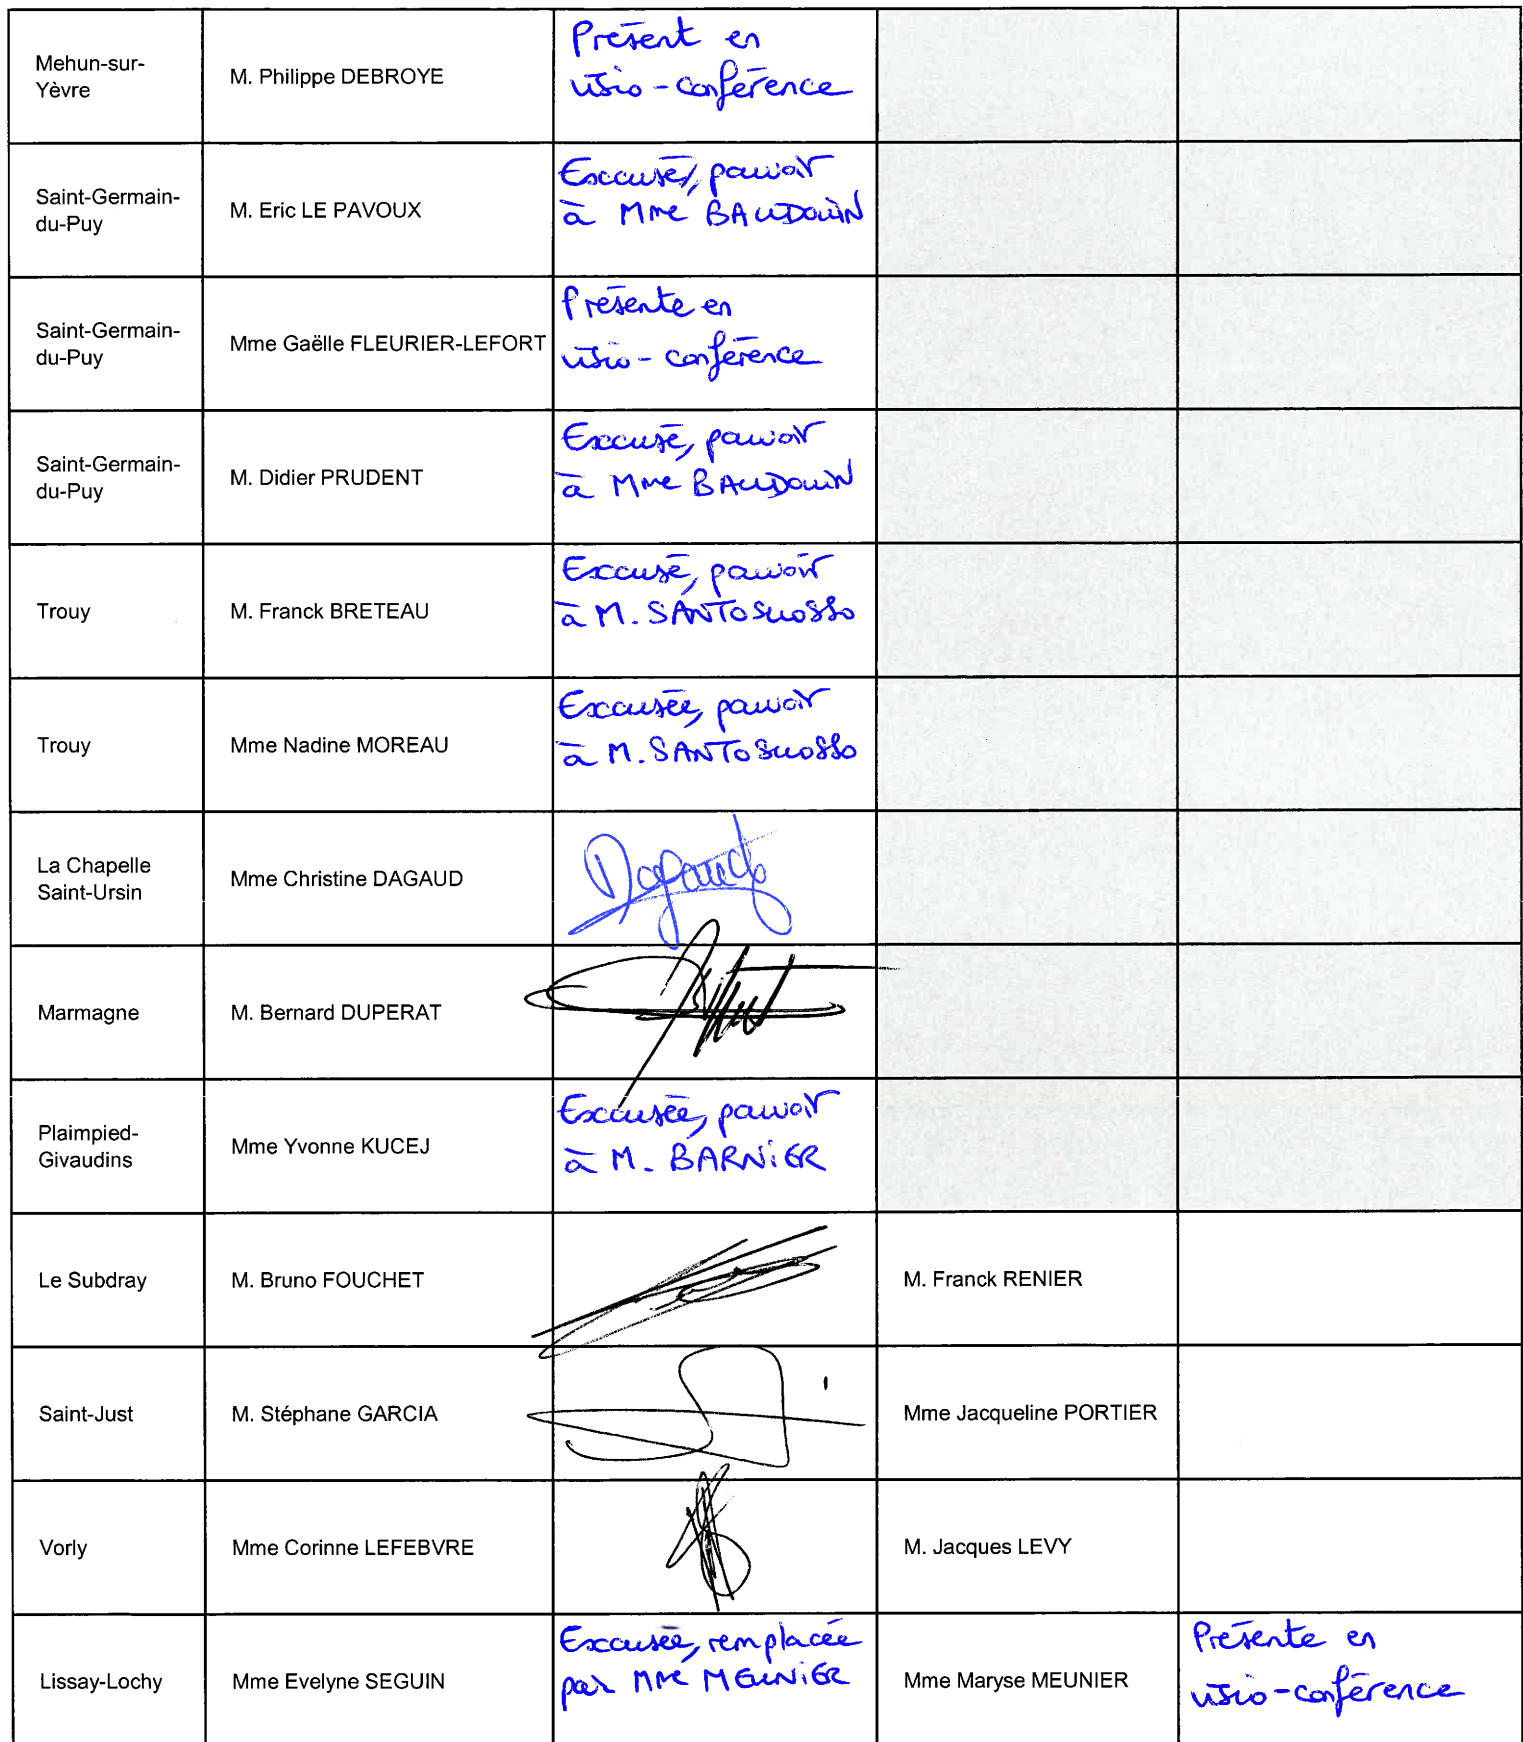 Mehun-sur-
Yèvre
M. Philippe DEBROYE
Présent en
visio-conférence
Saint-Germain-
du-Puy
M. Eric LE PAVOUX
Excusé, pouvoir
à Mme BAUDOUIN
Saint-Germain-
du-Puy
Mme Gaëlle FLEURIER-LEFORT
Présente en
visio-conférence
Saint-Germain-
du-Puy
M. Didier PRUDENT
Excusé, pouvoir
à Mme BAUDOUIN
Trouy
M. Franck BRETEAU
Excusé, pouvoir
à M. SANTOSUOSSO
Trouy
Mme Nadine MOREAU
Excusée, pouvoir
à M. SANTOSUOSSO
La Chapelle
Saint-Ursin
Mme Christine DAGAUD
Dagaud
Marmagne
M. Bernard DUPERAT
Plaimpied-
Givaudins
Mme Yvonne KUCEJ
Excusée, pouvoir
à M. BARNIER
Le Subdray
M. Bruno FOUCHET
M. Franck RENIER
Saint-Just
M. Stéphane GARCIA
Mme Jacqueline PORTIER
Vorly
Mme Corinne LEFEBVRE
M. Jacques LEVY
Lissay-Lochy
Mme Evelyne SEGUIN
Excusée, remplacée
par Mme MEUNIER
Mme Maryse MEUNIER
Présente en
visio-conférence